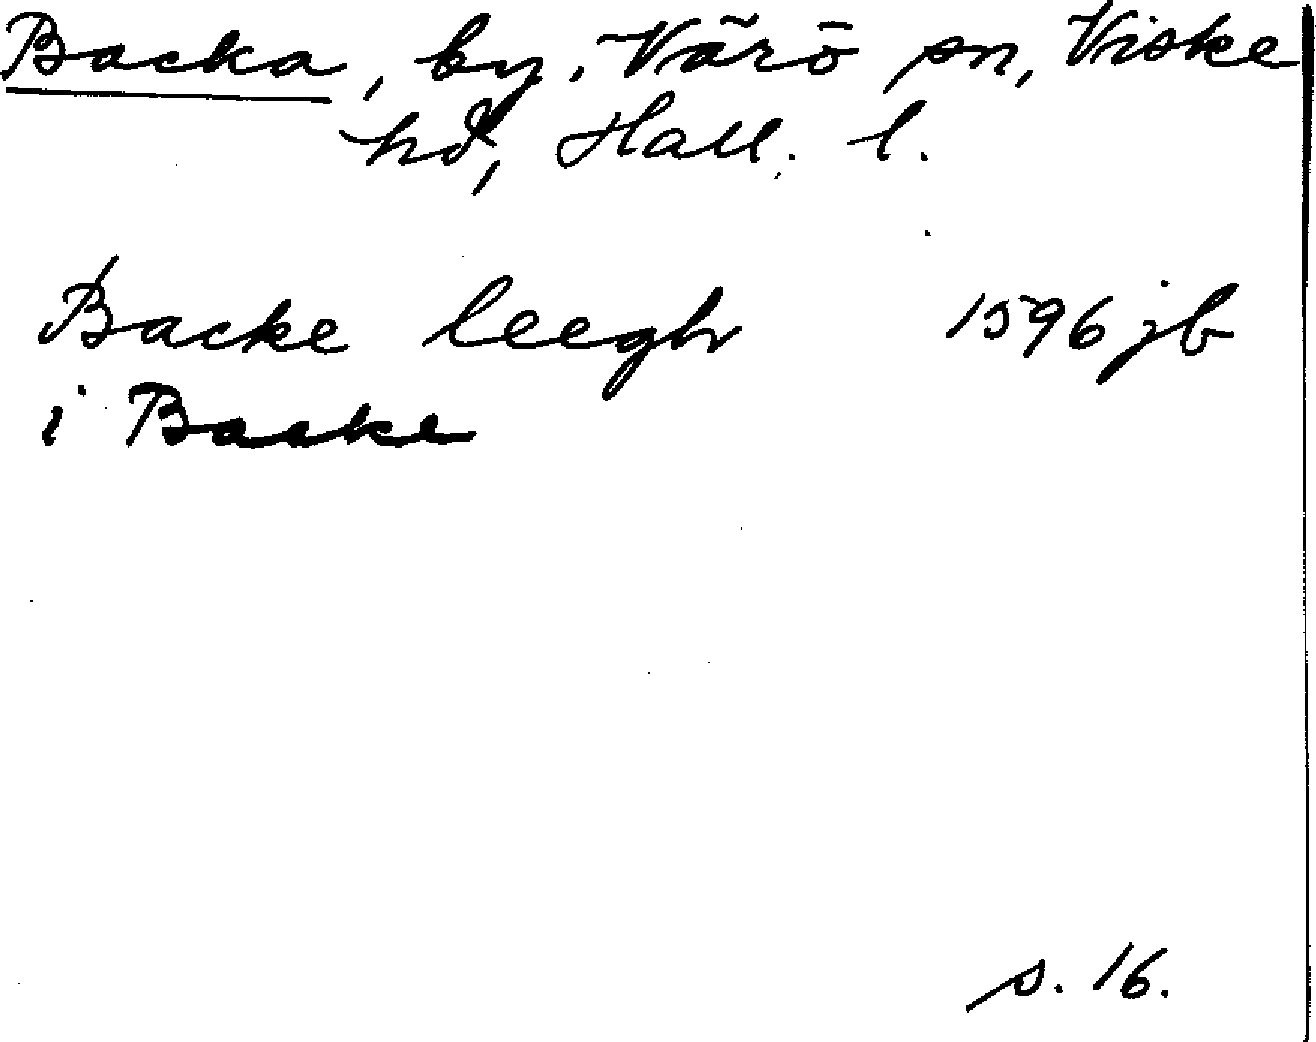 Backa, by, Värö sn, Viske
hd, Hall. l.
Backe leegh 1596 jb
i Backe
s. 16.